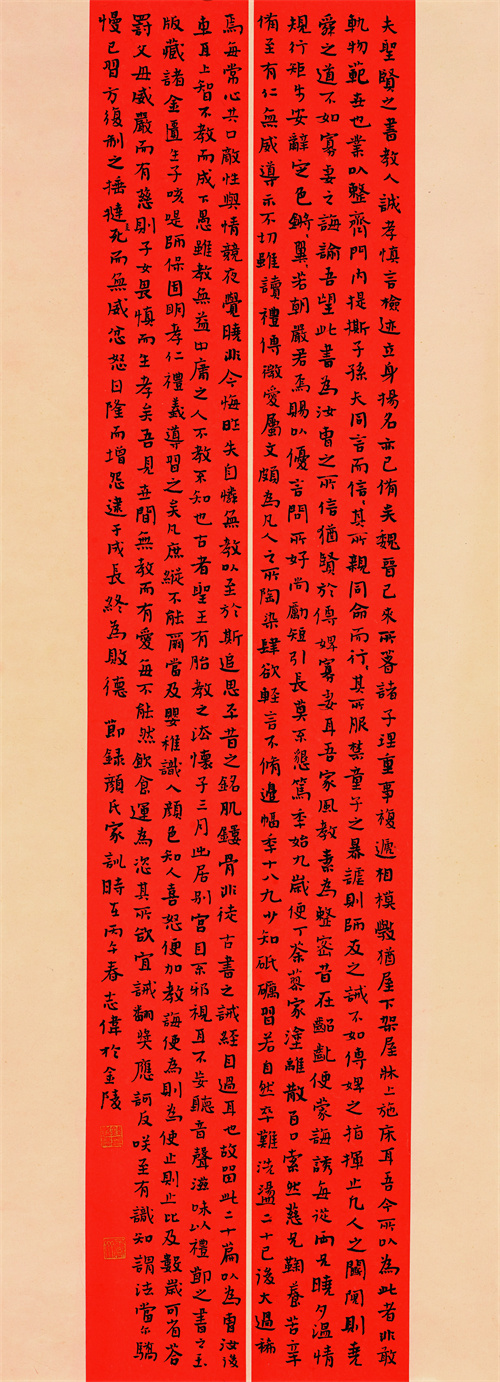 夫聖賢之書教人誠孝慎言檢迹立身揚名亦已備矣魏晉已來所著諸子理重事複遞相模斆猶屋下架屋牀上施床耳吾今所以為此者非敢
軌物範世也業以整齊門內提撕子孫夫同言而信信其所親同命而行行其所服禁童子之暴謔則師友之誡不如傅婢之指揮止凡人之鬬鬩則堯
舜之道不如寡妻之誨諭吾望此書為汝曹之所信猶賢於傅婢寡妻耳吾家風教素為整密昔在齠齔便蒙誨誘每從兩兄曉夕溫凊
規行矩步安辭定色鏘鏘翼翼若朝嚴君焉賜以優言問所好尚勵短引長莫不懇篤年始九歲便丁荼蓼家塗離散百口索然慈兄鞠養苦辛
備至有仁無威導示不切雖讀禮傳微愛屬文頗為凡人之所陶染肆欲輕言不備邊幅年十八九少知砥礪習若自然卒難洗盪二十已後大過稀
焉每常心共口敵性與情競夜覺曉非今悔昨失自憐無教以至於斯追思平昔之銘肌鏤骨非徒古書之誡經目過耳也故留此二十篇以為曹汝後
車耳上智不教而成下愚雖教無益中庸之人不教不知也古者聖王有胎教之法懷子三月出居別宮目不邪視耳不妄聽音聲滋味以禮節之書之玉
版藏諸金匱生子咳㖷師保固明孝仁禮義導習之矣凡庶縱不能爾當及嬰稚識人顏色知人喜怒便加教誨使為則為使止則止比及數歲可省笞
罰父母威嚴而有慈則子女畏慎而生孝矣吾見世間無教而有愛每不能然飲食運為恣其所欲宜誡翻獎應訶反咲至有識知謂法當爾驕
慢已習方復制之捶撻至死而無威忿怒日隆而增怨逮于成長終為敗德 節錄顏氏家訓時在丙午春志偉於金陵